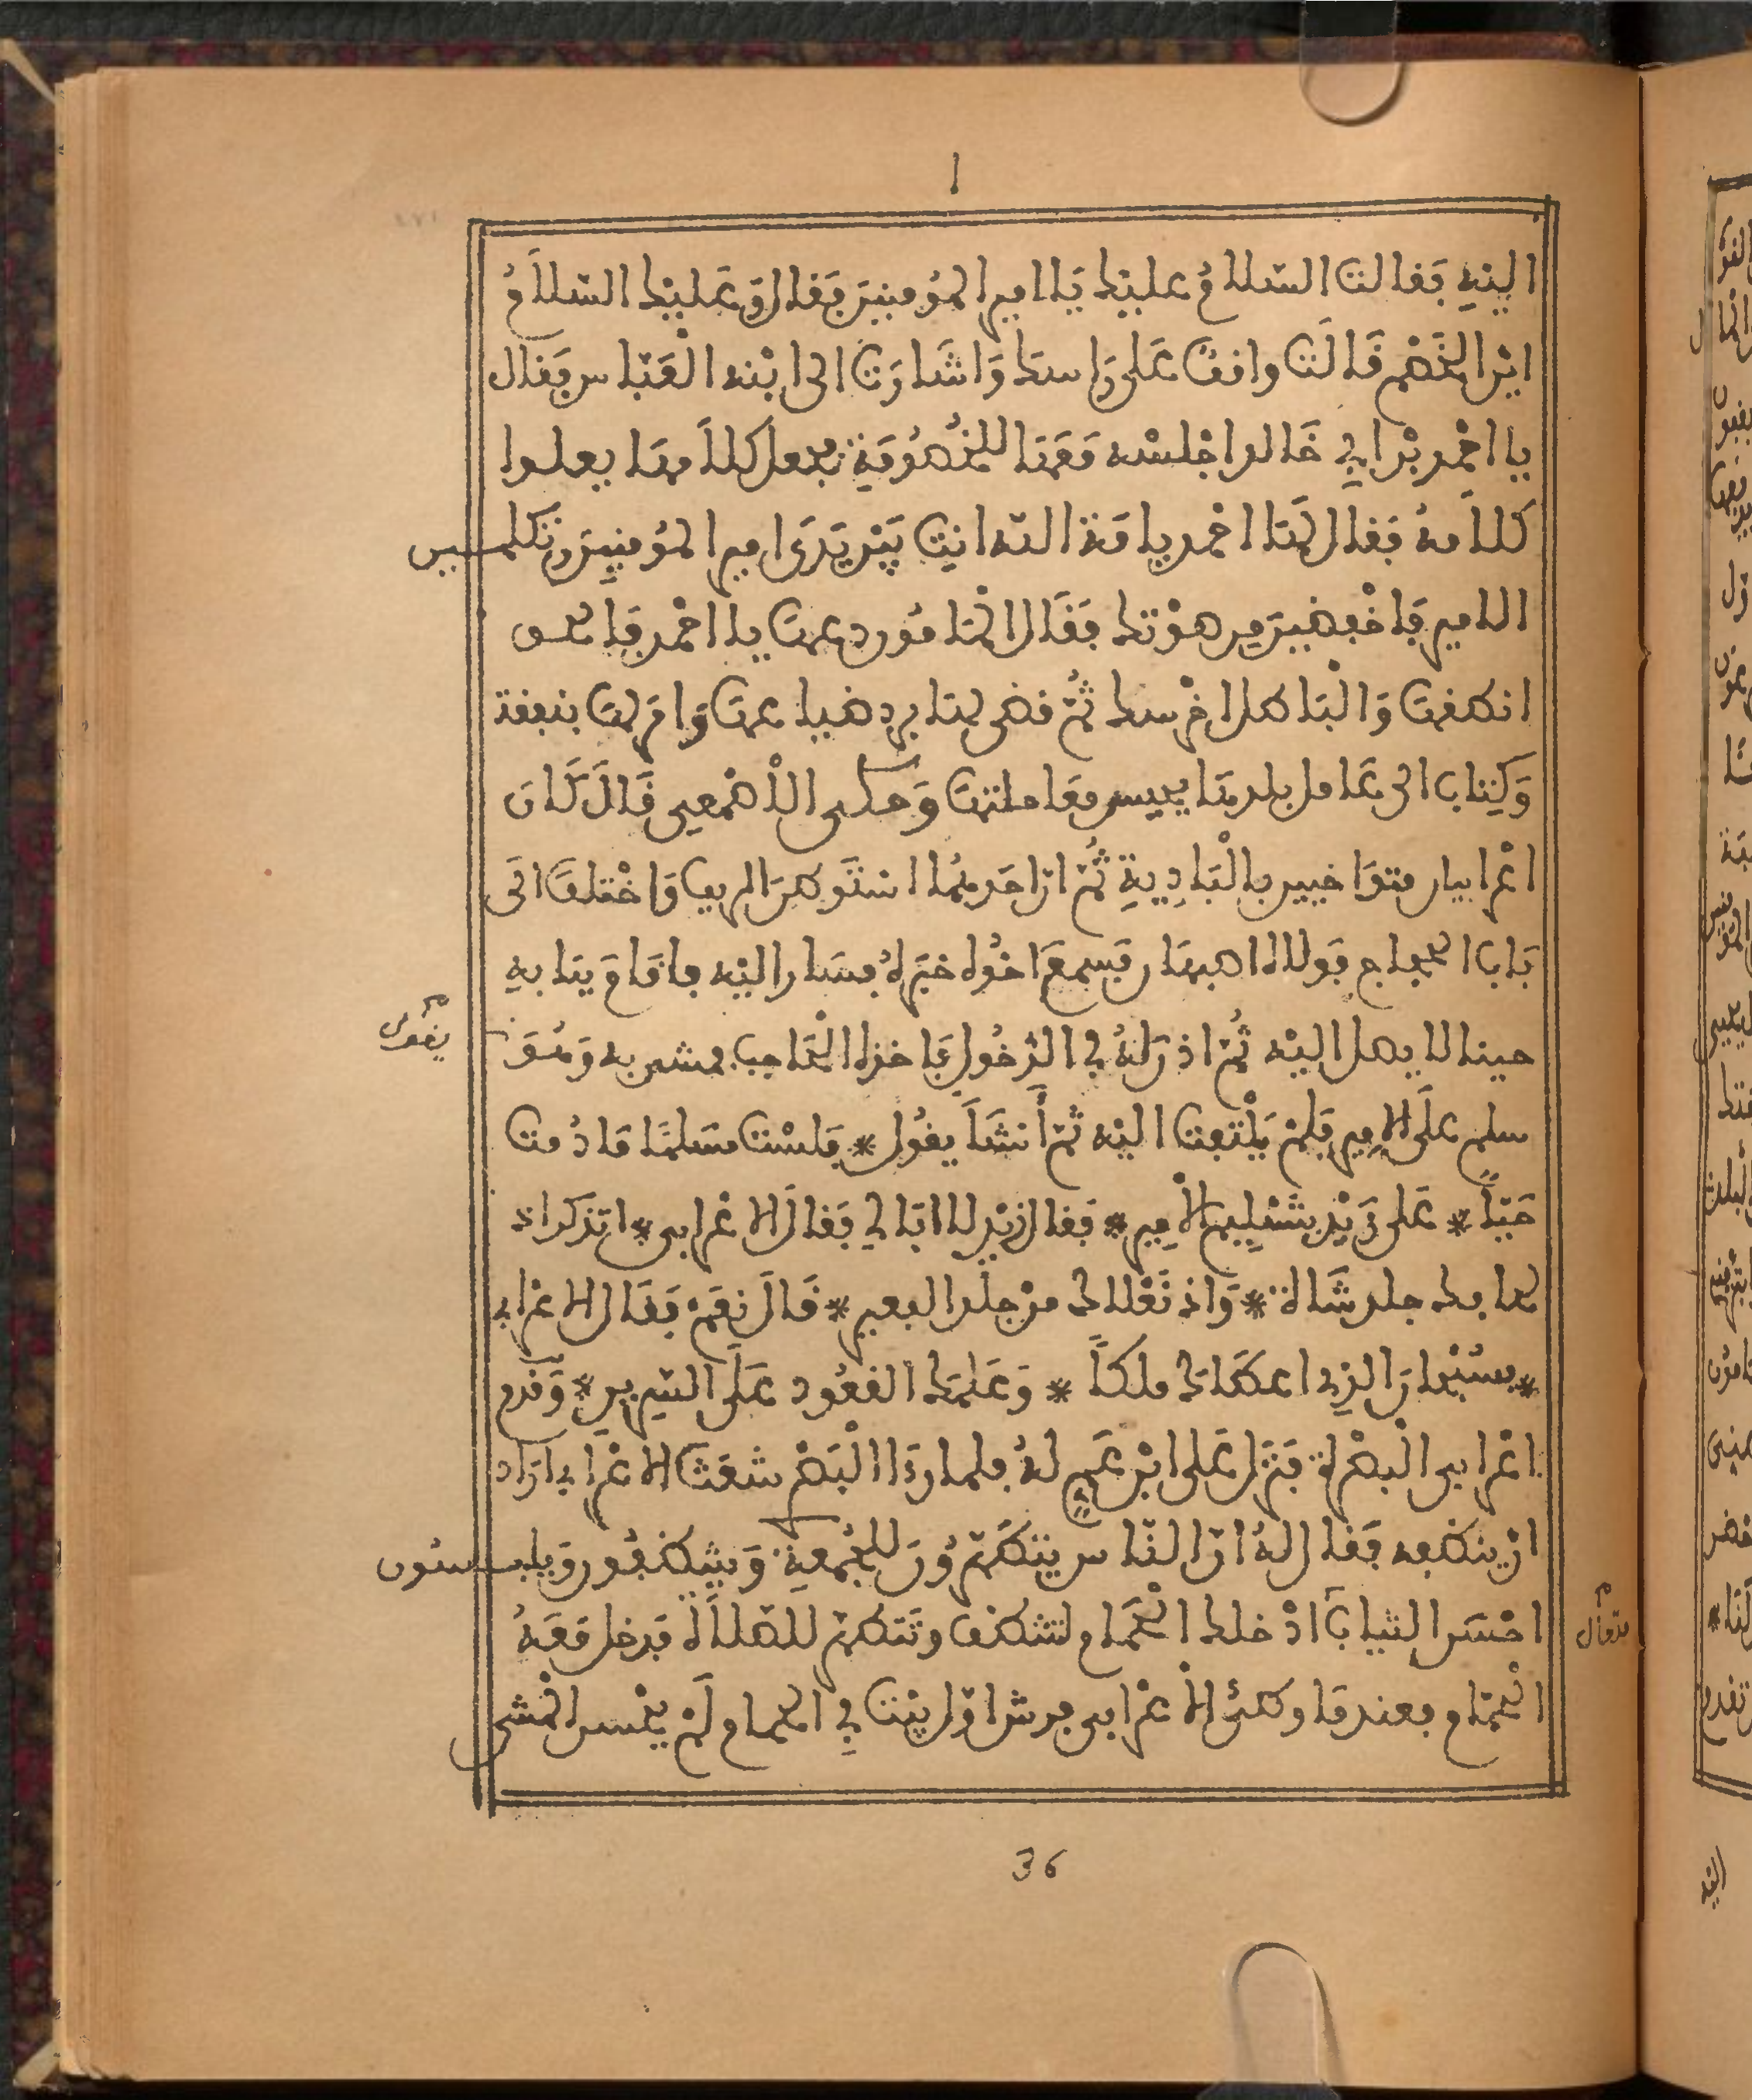 ا
اليْهِ فَقالت السّلامُ عليْك يَا امير المُومنِينَ فقال وَعَليْك السّلَامُ
ايْن الخَصْم قَالَت واقفٌ عَلى رَاسك وَاشَارَت الى ابْنه الْعَبّاس فَقال
يا احْمد بْن ابي خَالد اجْلسْه مَعَهَا للخُصُومَةِ فجعل كلَامهَا يعلوا
كلَامهُ فَقال لَهَا احْمد يا امَة الله انتِ بَيْن يَدَى امير المُومنِينَ وتكلمين
الامير فَاخْفضِينَ من صوْتك فَقَال المَامُون دعها يا احْمد فَان الحق
انطقها وَالْبَاطل اخْرسه ثُمّ قضى لها برد ضياعها وَامَر لها بنفقة
وَكِتاب الى عَامل بلدهَا يحسن معَاملتها وَحكى الْأصْمَعِي قَالَ كَان
اعْرابيان متوَاخيين بِالْبَادِيةِ ثُمّ انّ احَدهُما اسْتَوطن الريف وَاخْتلفَ الى
بَاب الحجاج فولاه اصبهَان فسمعَ اخُوه خبَرهُ فسَار اليْه فاقَامَ ببَابِه
حينا لا يصل اليْه ثُمّ اذن لهُ في الدّخُول فَاخذه الحَاجب فمشى به وَهُوَ
يقُول
سلم علَى الامِير فلمْ يَلْتفت اليْه ثمّ أَنشَأ يقُول * فلسْت مسَلمًا مَا دُمت
حَيّاً * عَلى زَيْد بتَسْلِيم الْأمِير * فَقال زيْد لا ابَالي فقال الاعْرابى * اتذكر اذ
لحافك جلد شَاة * وَاذ نَعْلاك منْ جلد البعير * قَالَ نعَمْ فَقَال الاعْرابي
* فسُبْحان الذِى اعطَاك ملكاً * وَعَلمَك القعُود عَلَى السّرِير * وَقدم
اعْرابى الْبصْرة فَنَزل عَلى ابْن عَمٍ لهُ فلما رءا ابْن عمه شعَث الاعْرابي ارَاد
انْ ينظفه فَقال لهُ انّ النّاس يتطَهّرُونَ للجُمعةِ وَيتنظفُون وَيلبسُون
احْسَن الثيابَ ادْخلك الْحَمام لتتنظف وتَتَطهّر للصّلَاة فدخل مَعَهُ
مقال
الْحَمّام فعندمَا وطئ الْأعْرابى فرش اوّل بيْت فِي الحمام لَمْ يحْسن المْشى
36